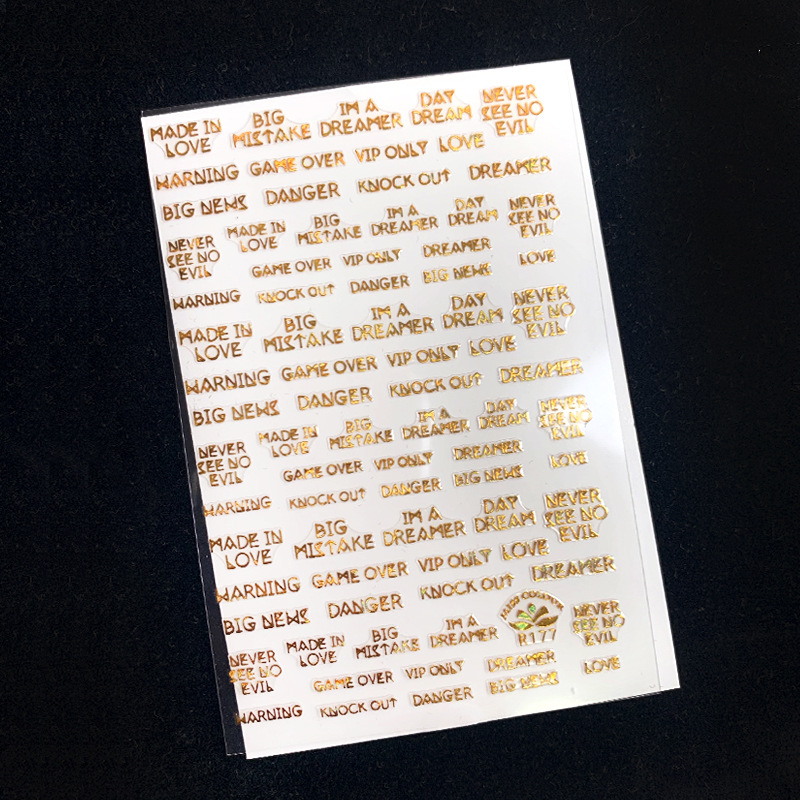 MADE IN LOVE BIG MISTAKE IM A DREAMER DAY DREAM NEVER SEE NO EVIL
WARNING GAME OVER VIP ONLY LOVE
BIG NEWS DANGER KNOCK OUT DREAMER
NEVER SEE NO EVIL MADE IN LOVE BIG MISTAKE IM A DREAMER DAY DREAM NEVER SEE NO EVIL
GAME OVER VIP ONLY DREAMER LOVE
WARNING KNOCK OUT DANGER BIG NEWS
MADE IN LOVE BIG MISTAKE IM A DREAMER DAY DREAM NEVER SEE NO EVIL
WARNING GAME OVER VIP ONLY LOVE
BIG NEWS DANGER KNOCK OUT DREAMER
NEVER SEE NO EVIL MADE IN LOVE BIG MISTAKE IM A DREAMER DAY DREAM NEVER SEE NO EVIL
GAME OVER VIP ONLY DREAMER LOVE
WARNING KNOCK OUT DANGER BIG NEWS
MADE IN LOVE BIG MISTAKE IM A DREAMER DAY DREAM NEVER SEE NO EVIL
WARNING GAME OVER VIP ONLY LOVE
BIG NEWS DANGER KNOCK OUT DREAMER
NEVER SEE NO EVIL MADE IN LOVE BIG MISTAKE IM A DREAMER R177 NEVER SEE NO EVIL
GAME OVER VIP ONLY DREAMER LOVE
WARNING KNOCK OUT DANGER BIG NEWS